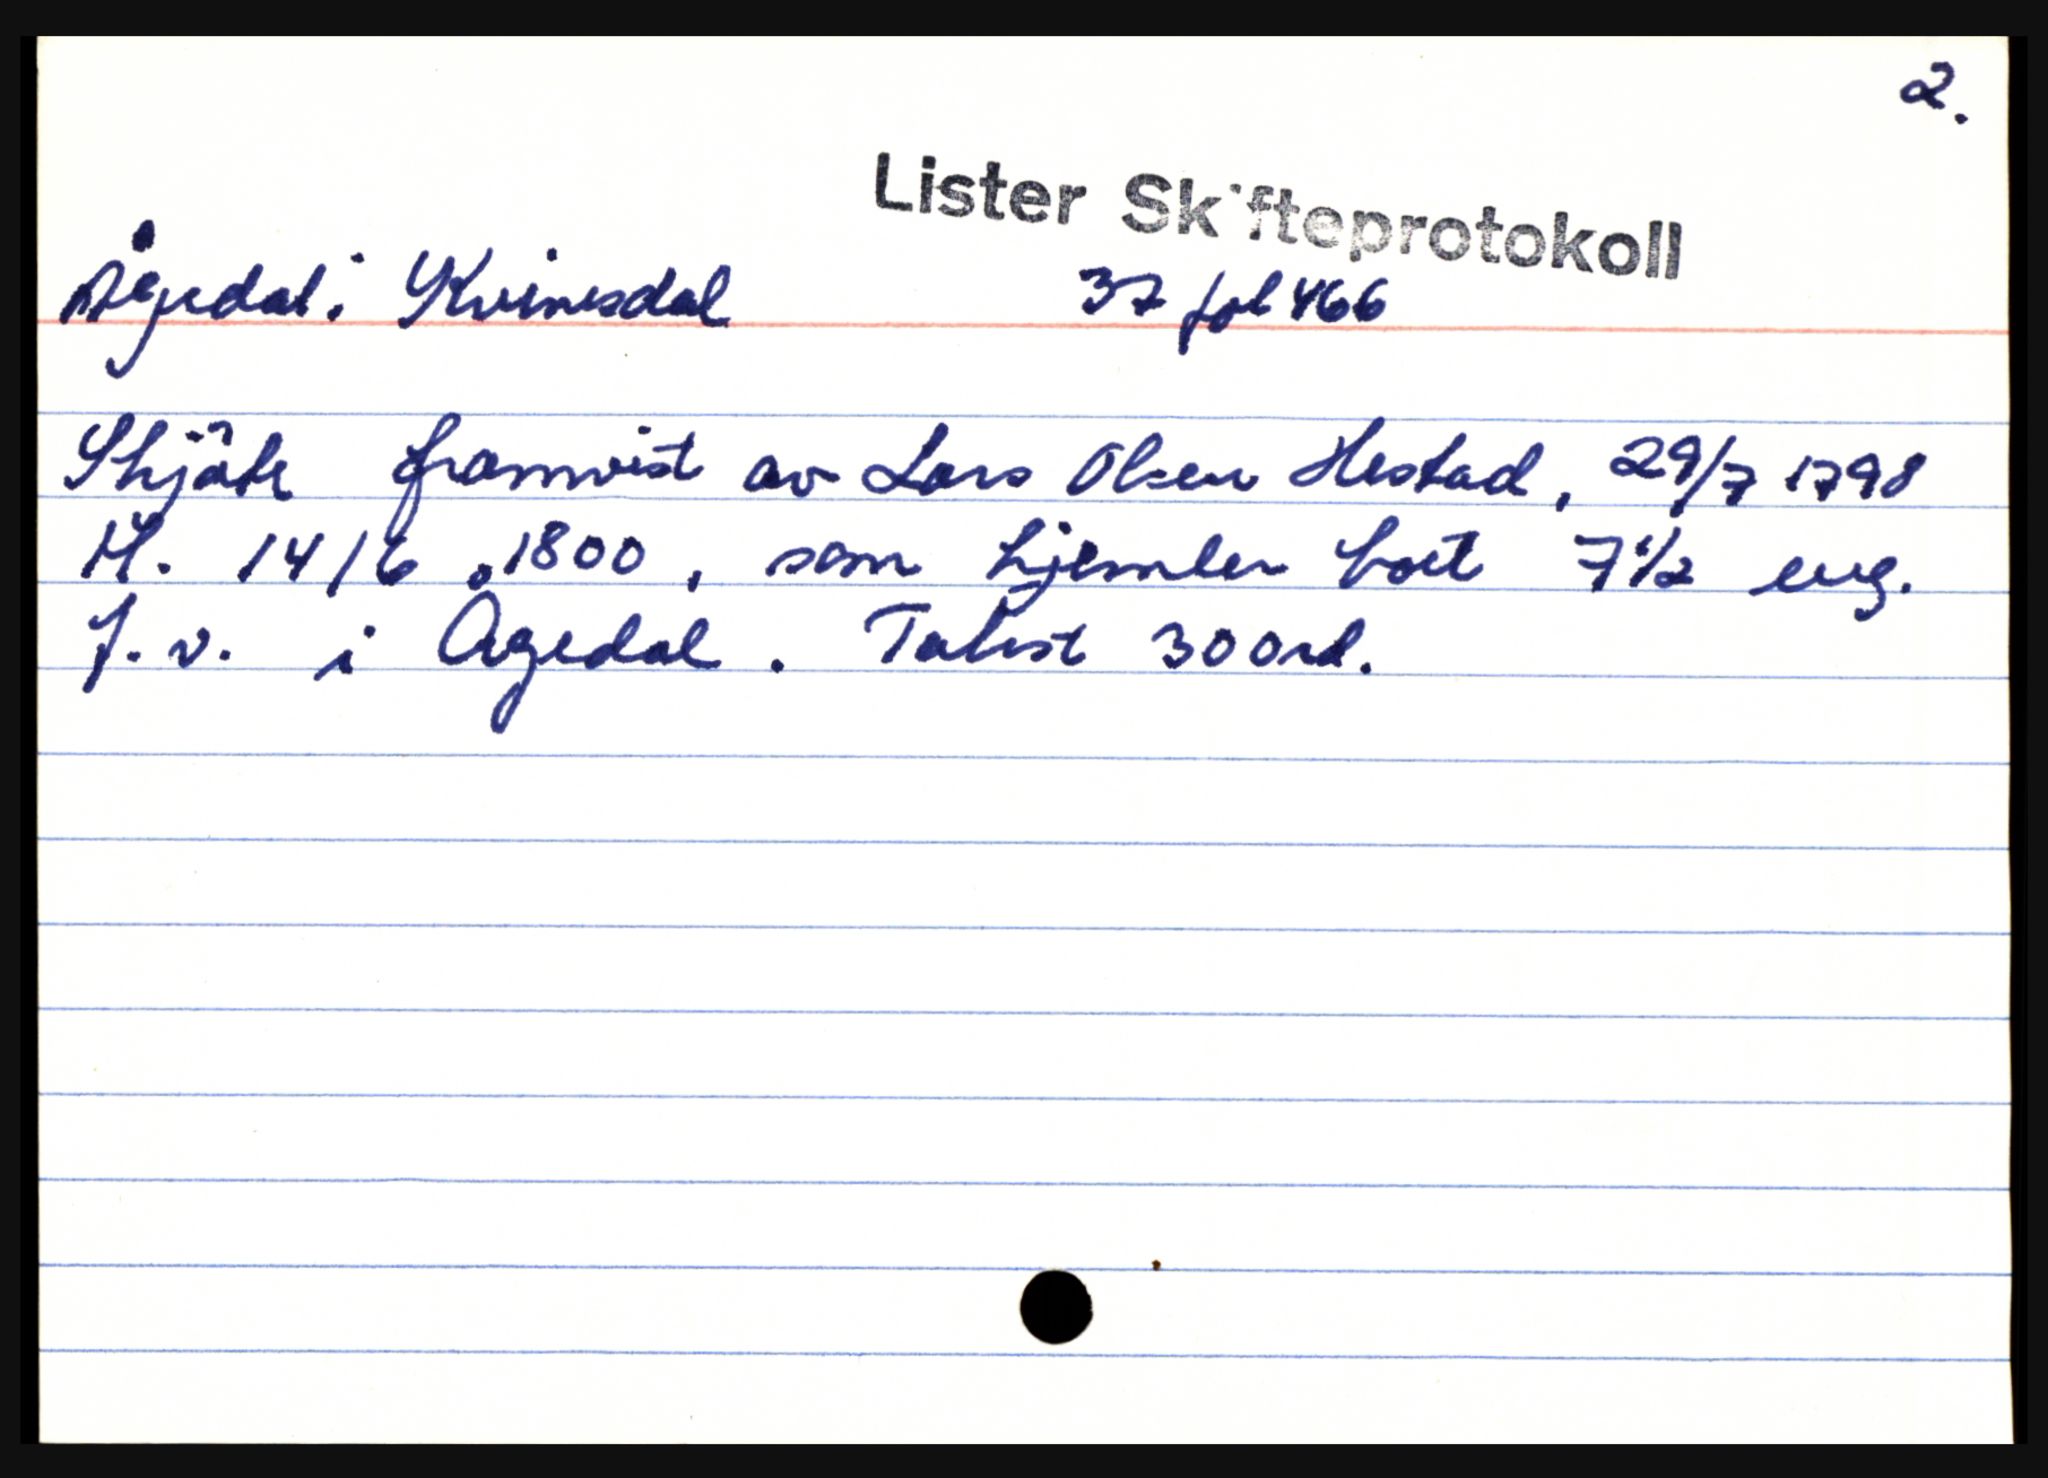 2.
Lister Skifteprotokoll
Ågedal i Kvinesdal 37 fol 466
Skjöte framvist av Lars Olsen Hestad, 29/7 1798
tl. 14/6 1800, som hjemler boet 7 1/2 eng.
j. v. i Ågedal. Takst 300rd.